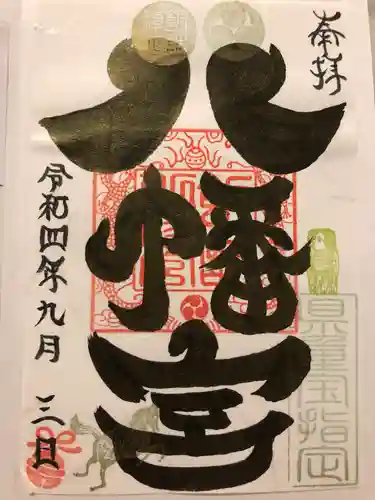 奉拝
八幡宮
令和四年九月三日
県重宝指定